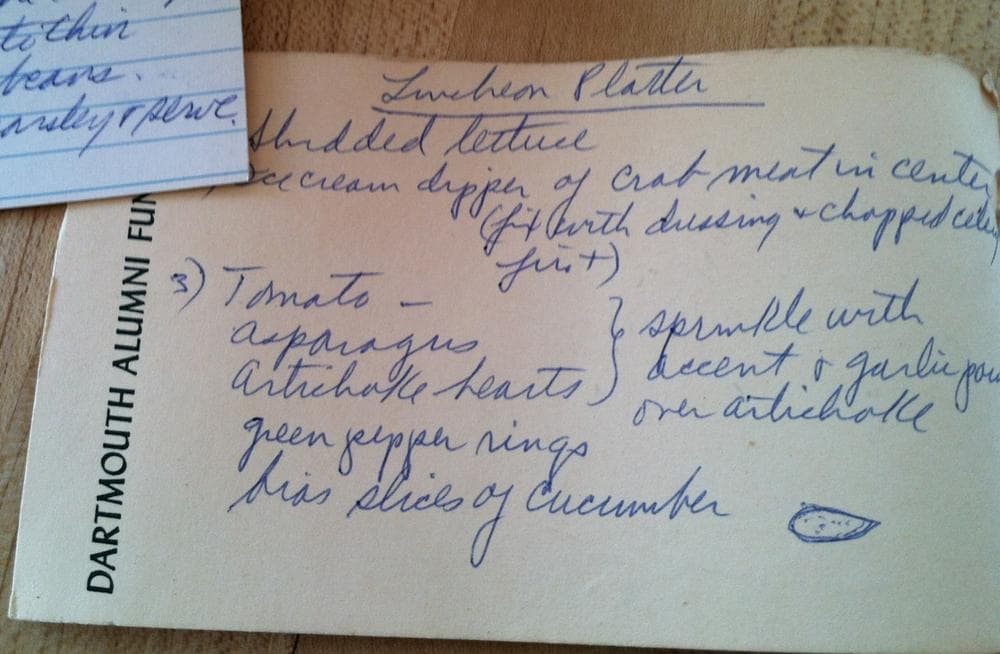 tichin
beans.
arsley & serve.
Luncheon Platter
Shredded lettuce
ice cream dipper of crab meat in center
(fix with dressing & chopped celery
first)
3) Tomato –
asparagus
artichoke hearts
} sprinkle with
accent & garlic pow
over artichoke
green pepper rings
bias slices of cucumber
DARTMOUTH ALUMNI FUN